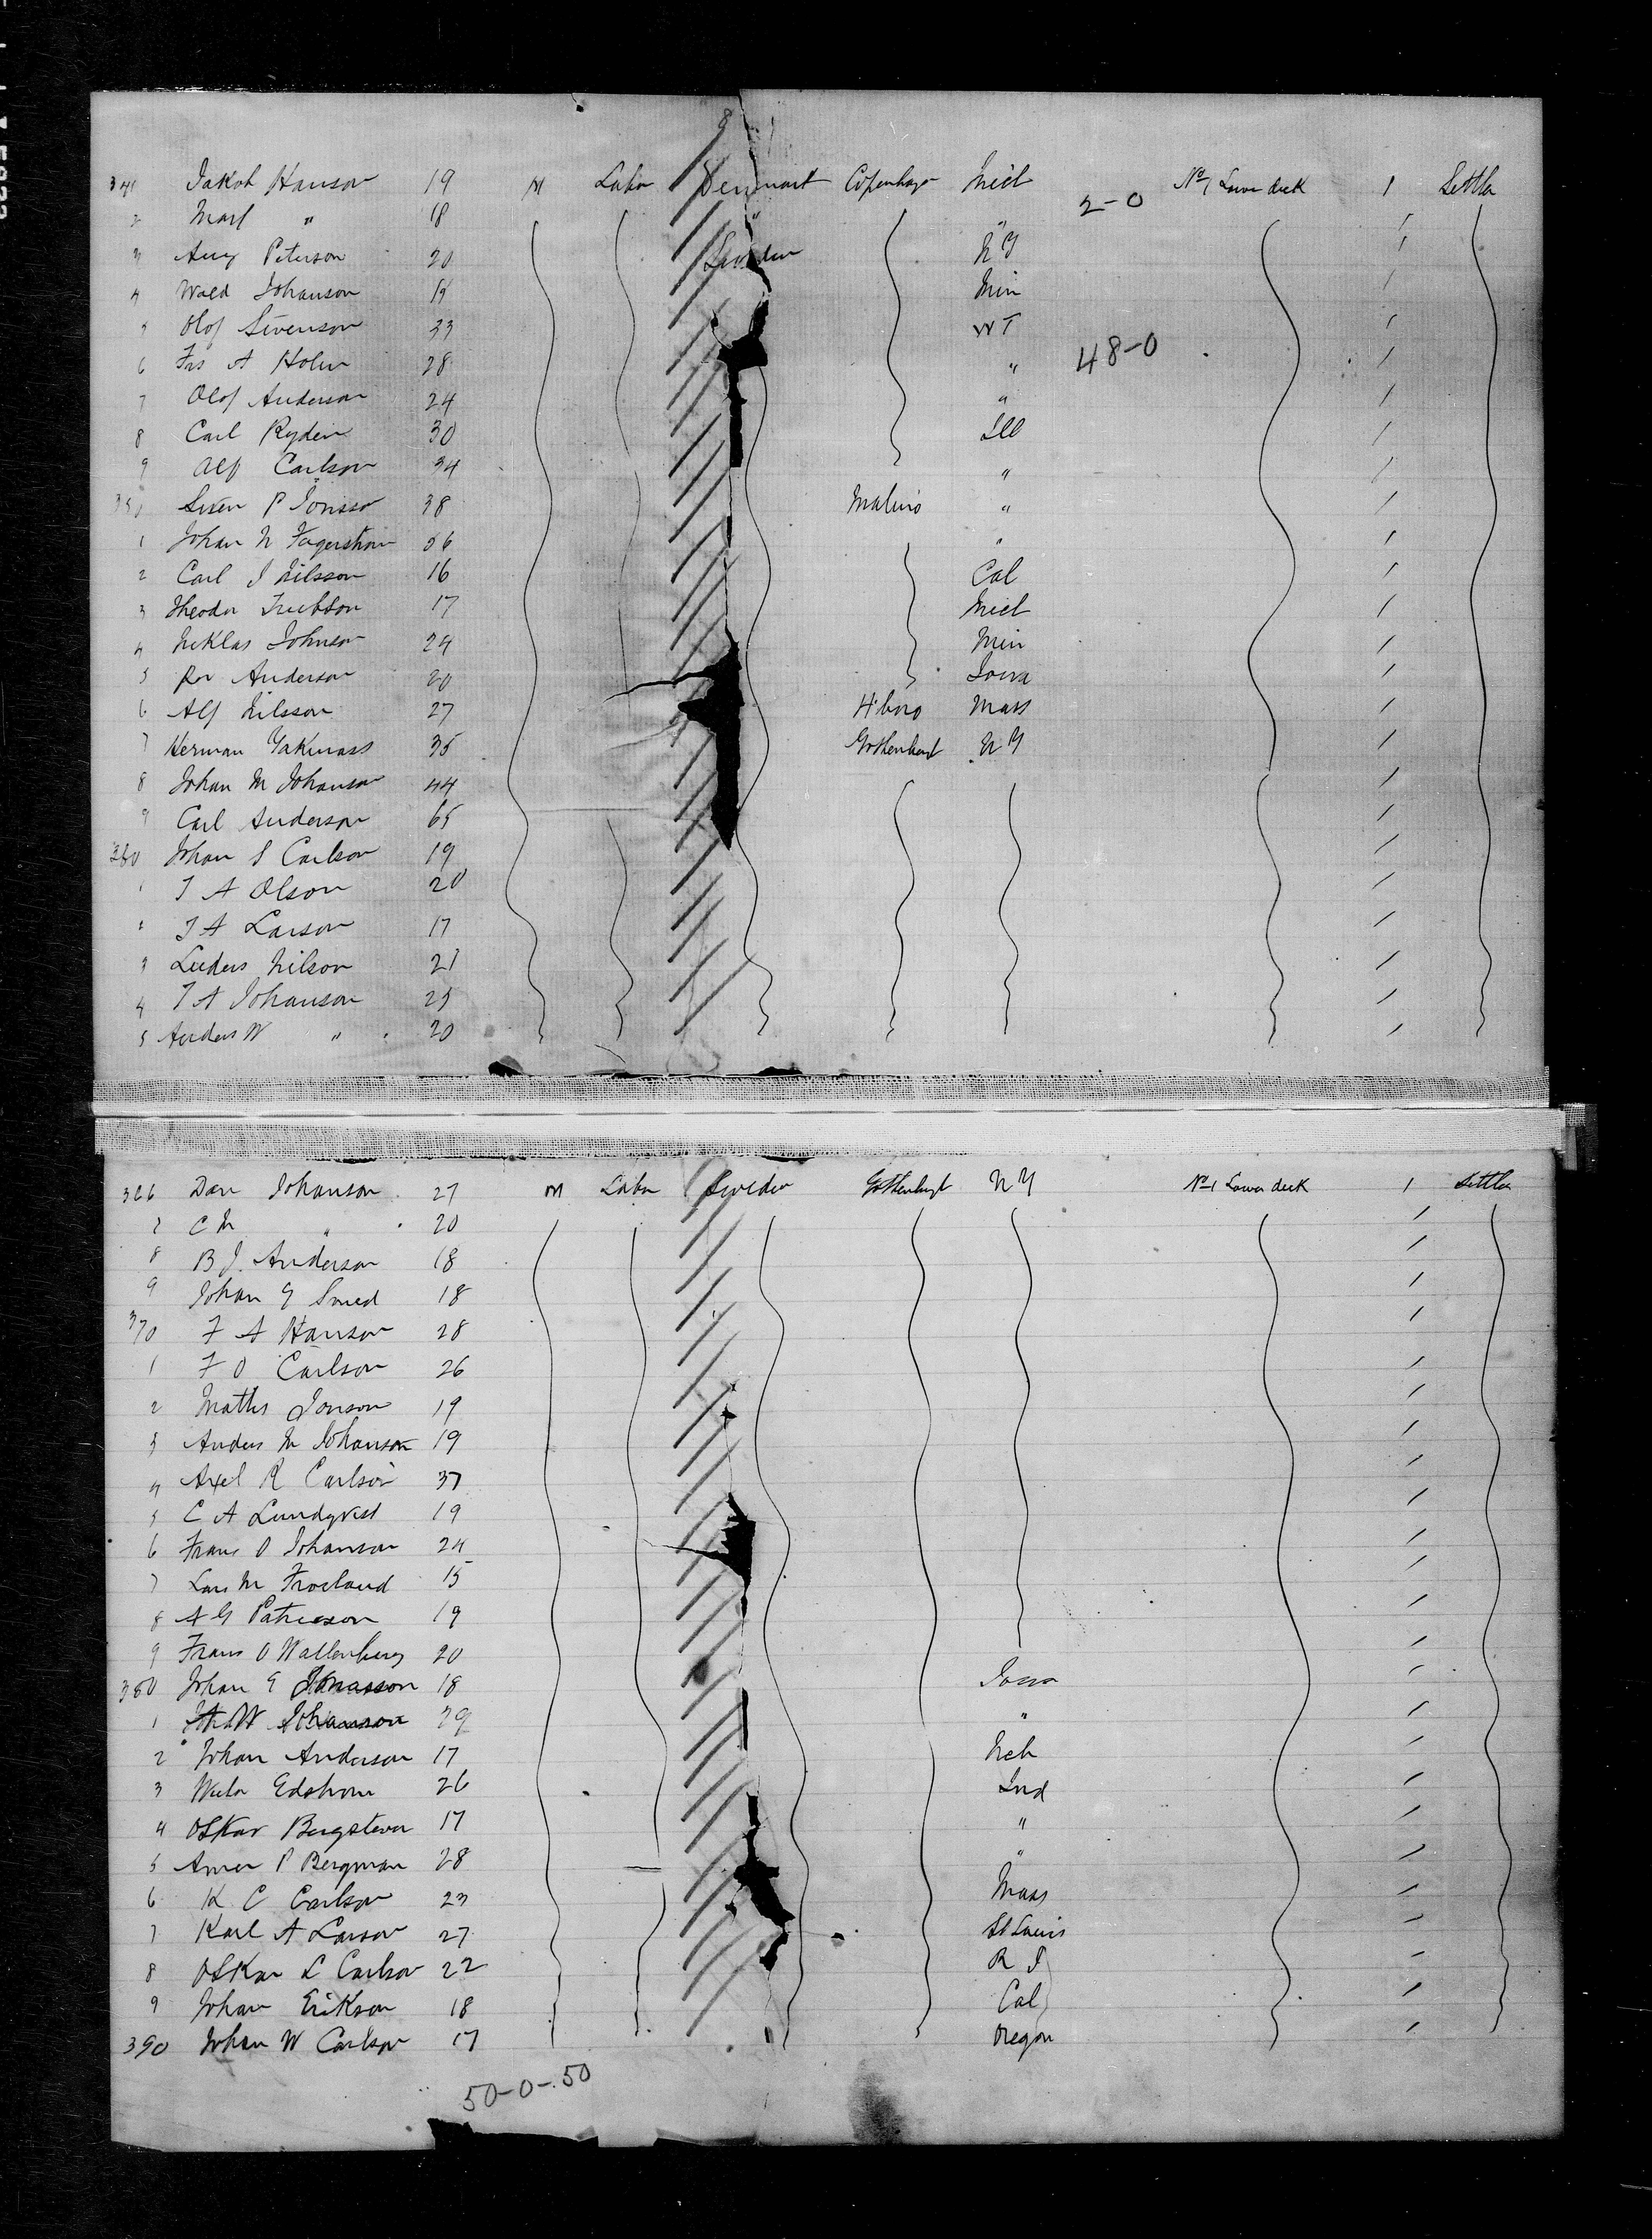 341 Jakob Hanson 19 M Labor Denmark Copenhagen Mich 2-0 No 1 Lower deck 1 Settler
2 Mary " 18 " "
3 Aug Peterson 20 Sweden N Y
4 Wald Johanson Min
5 Olof Svenson 33 W T
6 Frs A Holm 28 " 48-0
7 Olof Anderson 24 "
8 Carl Ryden 30 Ill
9 Alf Carlson 34 "
350 Sven P Jonsso 38 Malmo "
1 Johan N Fagerstrom 36 "
2 Carl J Nilsson 16 Cal
3 Theodor 17 Mich
4 Niklas Johnson 24 Min
5 Anderson 20 Iowa
6 Alf Nilsson 27 H'boro Mass
7 Herman 35 Gothenburg N Y
8 Johan M Johanson 44
9 Carl Anderson 65
360 Johan S Carlson 19
1 J A Olson 20
2 J A Larson 17
3 Nilson 21
4 J A Johanson 25
5 Anders W " 20
366 Dan Johanson 27 M Labor Sweden Gothenburgh N Y No 1 Lower deck 1 Settler
7 C M " 20
8 B J. Anderson 18
9 Johan G Smed 18
370 F A Hanson 28
1 F O Carlson 26
2 Matths Jonson 19
3 Anders M Johanson 19
4 Axel R Carlson 37
5 C A Lundqvist 19
6 Frans O Johanson 24
7 Lars M Froeland 15
8 A G Patricson 19
9 Frans O Wallenberg 20
380 Johan E Jonasson 18 Iowa
1 Joh W Johanson 29 "
2 Johan Anderson 17 Neb
3 Edstrom 26 Ind
4 Oskar Bergsteen 17 "
5 P Bergman 28 "
6 K C Carlson 23 Mass
7 Karl A Larson 27 St Louis
8 Oskar L Carlson 22 R I
9 Johan Erikson 18 Cal
390 Johan W Carlson 17 Oregon
50-0-50